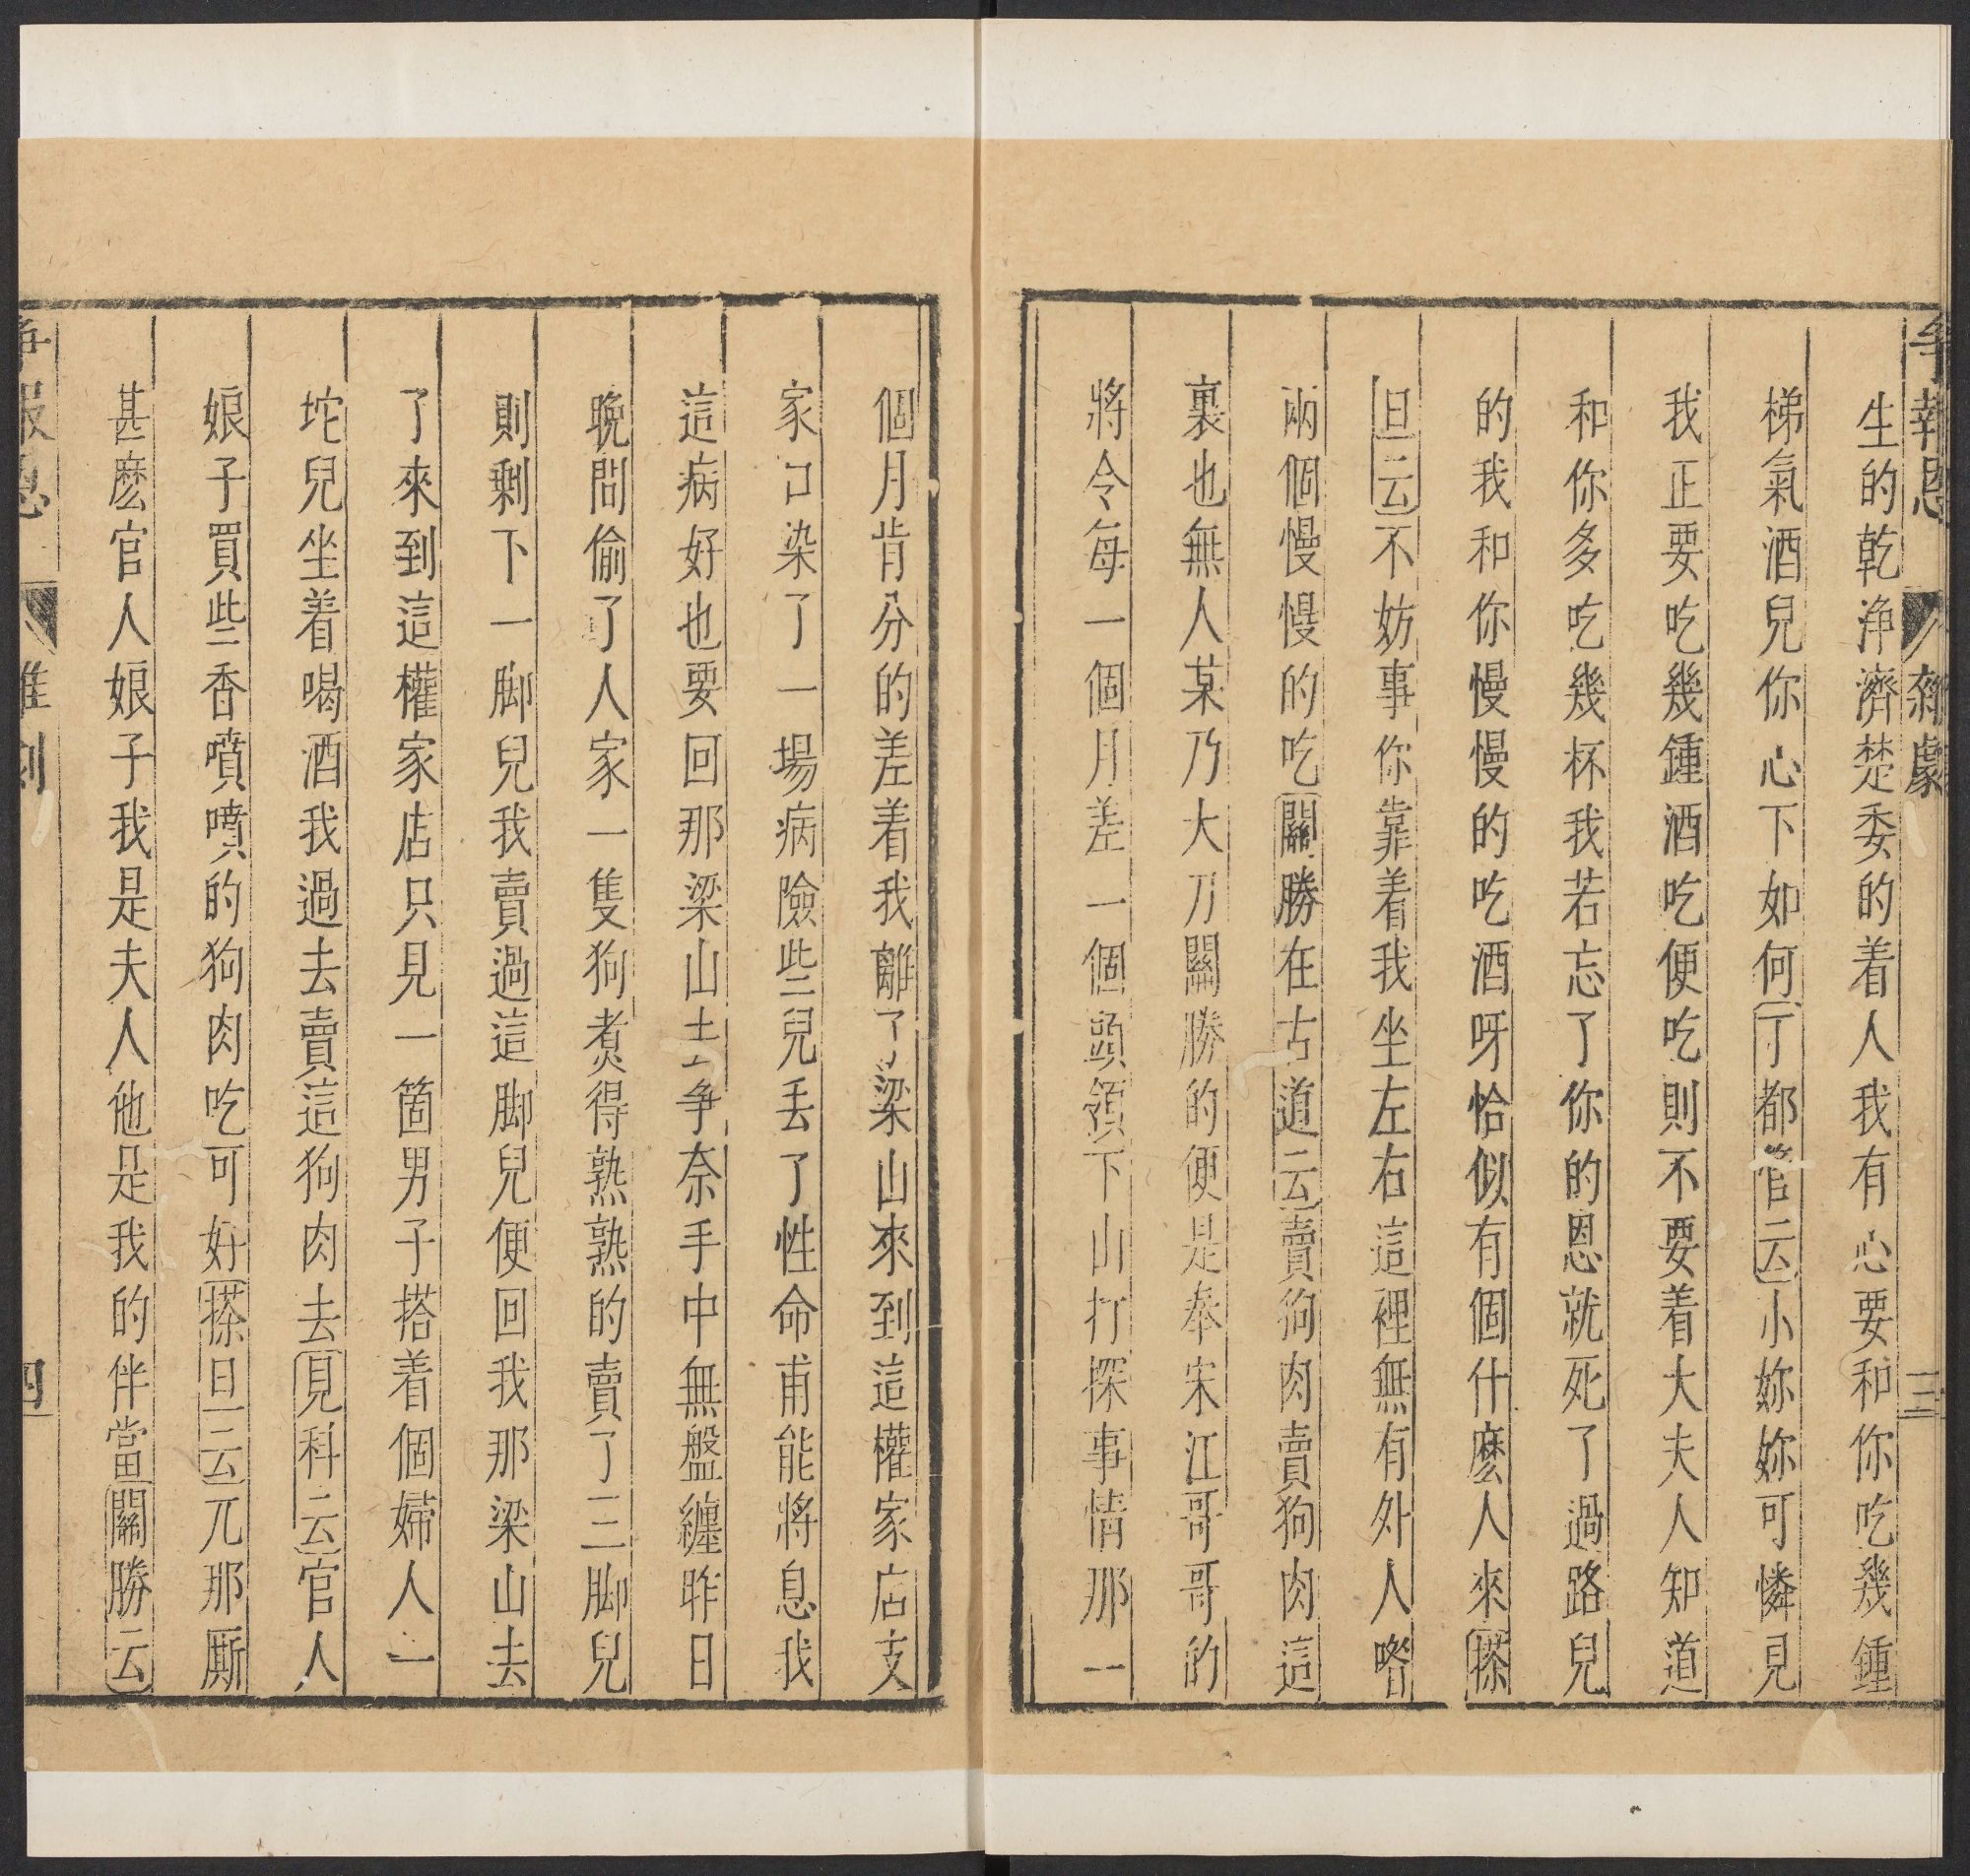 爭報恩 雜劇 三
生的乾淨濟楚委的着人我有心要和你吃幾鍾
梯氣酒兒你心下如何丁都管云小妳妳可憐見
我正要吃幾鍾酒吃便吃則不要着大夫人知道
和你多吃幾杯我若忘了你的恩就死了過路兒
的我和你慢慢的吃酒呀恰似有個什麽人來搽
旦云不妨事你靠着我坐左右這裡無有外人喒
兩個慢慢的吃關勝在古道云賣狗肉賣狗肉這
裏也無人某乃大刀關勝的便是奉宋江哥哥的
將令每一個月差一個頭領下山打探事情那一
個月肯分的差着我離了梁山來到這權家店支
家口染了一場病險些兒丢了性命甫能將息我
這病好也要回那梁山去爭奈手中無盤纏昨日
晚間偷了人家一隻狗煮得熟熟的賣了三脚兒
則剩下一脚兒我賣過這脚兒便回我那梁山去
了來到這權家店只見一箇男子搭着個婦人一
坨兒坐着喝酒我過去賣這狗肉去見科云官人
娘子買些香噴噴的狗肉吃可好搽旦云兀那厮
甚麽官人娘子我是夫人他是我的伴當關勝云
爭報恩 雜劇 四